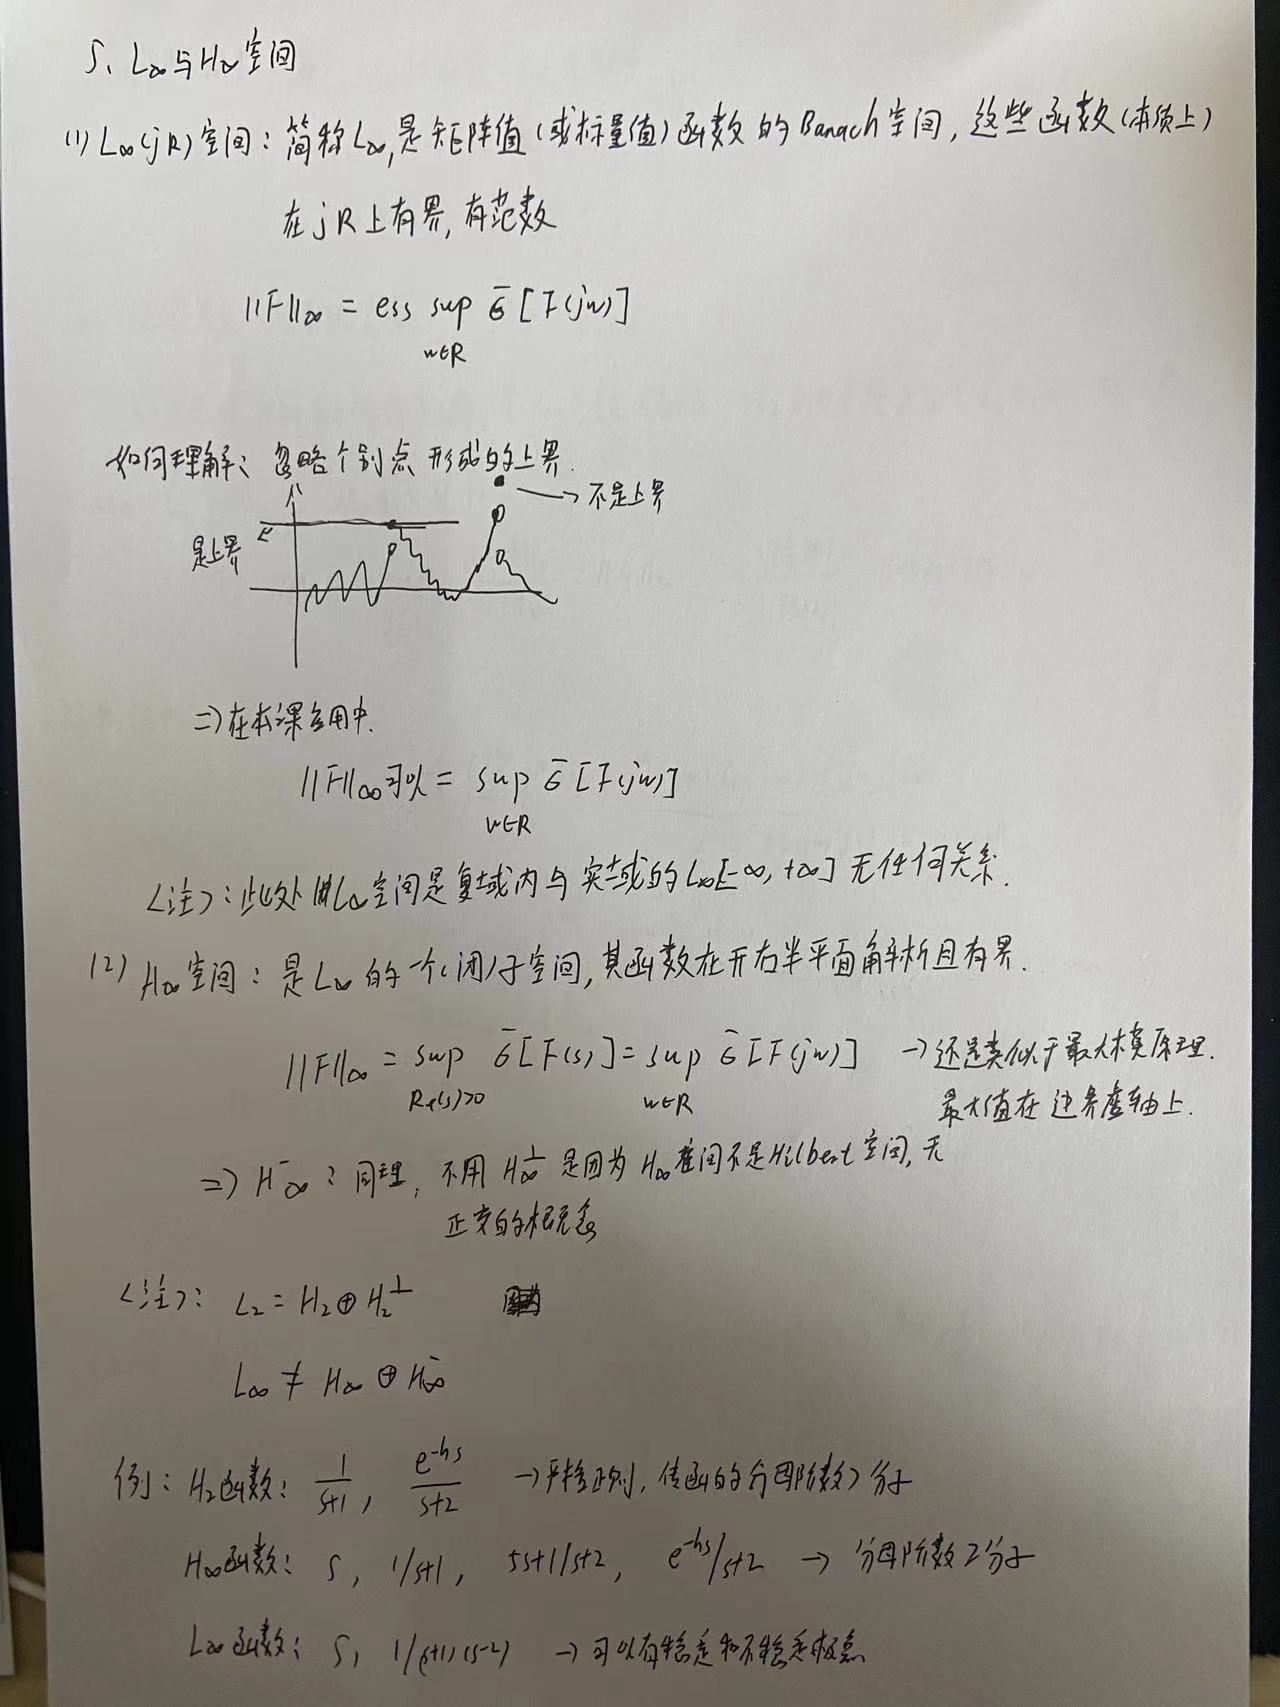 5、L∞与H∞空间
(1) L∞(jR)空间：简称L∞,是矩阵值(或标量值)函数的Banach空间,这些函数(本质上)
在jR上有界,有范数
||F||∞ = ess sup σ̄[F(jw)]
w∈R
如何理解：忽略个别点形成的上界.
→不是上界
是上界
⇒在本课应用中.
||F||∞可以= sup σ̄[F(jw)]
w∈R
<注>：此处L∞空间是复域内与实域的L∞[-∞,+∞]无任何关系.
(2) H∞空间：是L∞的一个(闭)子空间,其函数在开右半平面解析且有界.
||F||∞ = sup σ̄[F(s)] = sup σ̄[F(jw)] →还是类似于最大模原理.
Re(s)>0 w∈R 最大值在边界虚轴上.
⇒ H∞⁻：同理,不用H∞^⊥是因为H∞空间不是Hilbert空间,无
正交的概念
<注>：L₂ = H₂⊕H₂^⊥
L∞ ≠ H∞ ⊕ H∞⁻
例：H₂函数：1/s+1, e^-hs/s+2 →严格正则,传函的分母阶数>分子
H∞函数：5, 1/s+1, 5s+1/s+2, e^-hs/s+2 → 分母阶数≥分子
L∞函数：5, 1/(s+1)(s-2) →可以有稳定和不稳定极点